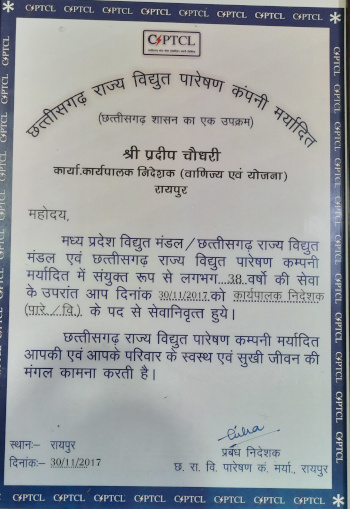 CSPTCL CSPTCL CSPTCL CSPTCL CSPTCL CSPTCL
CSPTCL
छत्तीसगढ़ राज्य विद्युत पारेषण कंपनी मर्यादित
(छत्तीसगढ़ शासन का एक उपक्रम)
श्री प्रदीप चौधरी
कार्या.कार्यपालक निदेशक (वाणिज्य एवं योजना)
रायपुर
महोदय,
मध्य प्रदेश विद्युत मंडल/छत्तीसगढ़ राज्य विद्युत
मंडल एवं छत्तीसगढ़ राज्य विद्युत पारेषण कम्पनी
मर्यादित में संयुक्त रूप से लगभग...38.वर्षो की सेवा
के उपरांत आप दिनांक 30/11/2017.को कार्यपालक निदेशक
(पारे./वि.) के पद से सेवानिवृत्त हुये।
छत्तीसगढ़ राज्य विद्युत पारेषण कम्पनी मर्यादित
आपकी एवं आपके परिवार के स्वस्थ एवं सुखी जीवन की
मंगल कामना करती है।
स्थानः– रायपुर
दिनांकः– 30/11/2017
प्रबंध निदेशक
छ. रा. वि. पारेषण कं. मर्या., रायपुर
CSPTCL CSPTCL CSPTCL CSPTCL CSPTCL CSPTCL CSPTCL